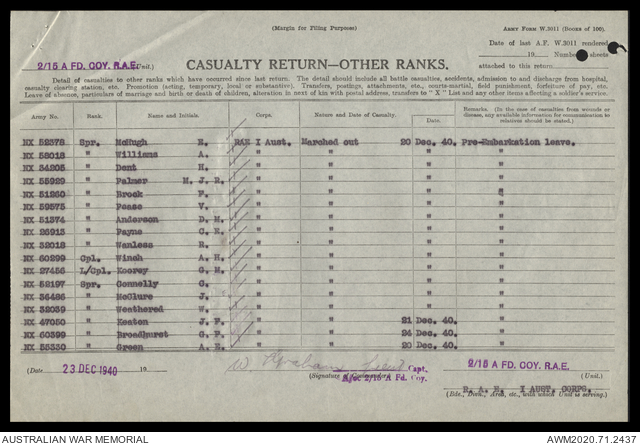 (Margin for Filing Purposes)
ARMY FORM W.3011 (BOOKS OF 100).
Date of last A.F. W.3011 rendered
19 Number sheets
2/15 A FD. COY. R.A.E. Unit.)
CASUALTY RETURN—OTHER RANKS.
attached to this return
Detail of casualties to other ranks which have occurred since last return. The detail should include all battle casualties, accidents, admission to and discharge from hospital,
casualty clearing station, etc. Promotion (acting, temporary, local or substantive). Transfers, postings, attachments, etc., courts-martial, field punishment, forfeiture of pay, etc.
Leave of absence, particulars of marriage and birth or death of children, alteration in next of kin with postal address, transfers to "X" List and any other items affecting a soldier's service.
Army No. Rank. Name and Initials. Corps. Nature and Date of Casualty. Date. Remarks. (In the case of casualties from wounds or disease, any available information for communication to relations should be stated.)
NX 52378 Spr. McHugh E. RAE I Aust. Marched out 20 Dec. 40. Pre-Embarkation leave.
NX 58018 " Williams A. " " " "
NX 34205 " Dent H. " " " "
NX 55929 " Palmer M. J. R. " " " "
NX 51260 " Brock F. " " " "
NX 59575 " Pease V. " " " "
NX 51374 " Anderson D. M. " " " "
NX 26913 " Payne C. E. " " " "
NX 32018 " Wanless R. " " " "
NX 60299 Cpl. Winch A. H. " " " "
NX 27456 L/Cpl. Koorey G. M. " " " "
NX 52197 Spr. Connelly C. " " " "
NX 36486 " McClure J. " " " "
NX 32039 " Weathered W. " " " "
NX 47050 " Keaton J. F. " " 21 Dec. 40. "
NX 60399 " Broadhurst G. F. " " 24 Dec. 40. "
NX 55330 " Green A. E. " " 20 Dec. 40. "
(Date 23 DEC 1940 19
W Graham Lieut Capt.
(Signature of Commander)
2/15 A FD. COY. R.A.E.
(Unit.)
2/15 A Fd. Coy.
R. A. E. I AUST. CORPS.
(Bde., Divn., Area, etc., with which Unit is serving.)
AUSTRALIAN WAR MEMORIAL
AWM2020.71.2437